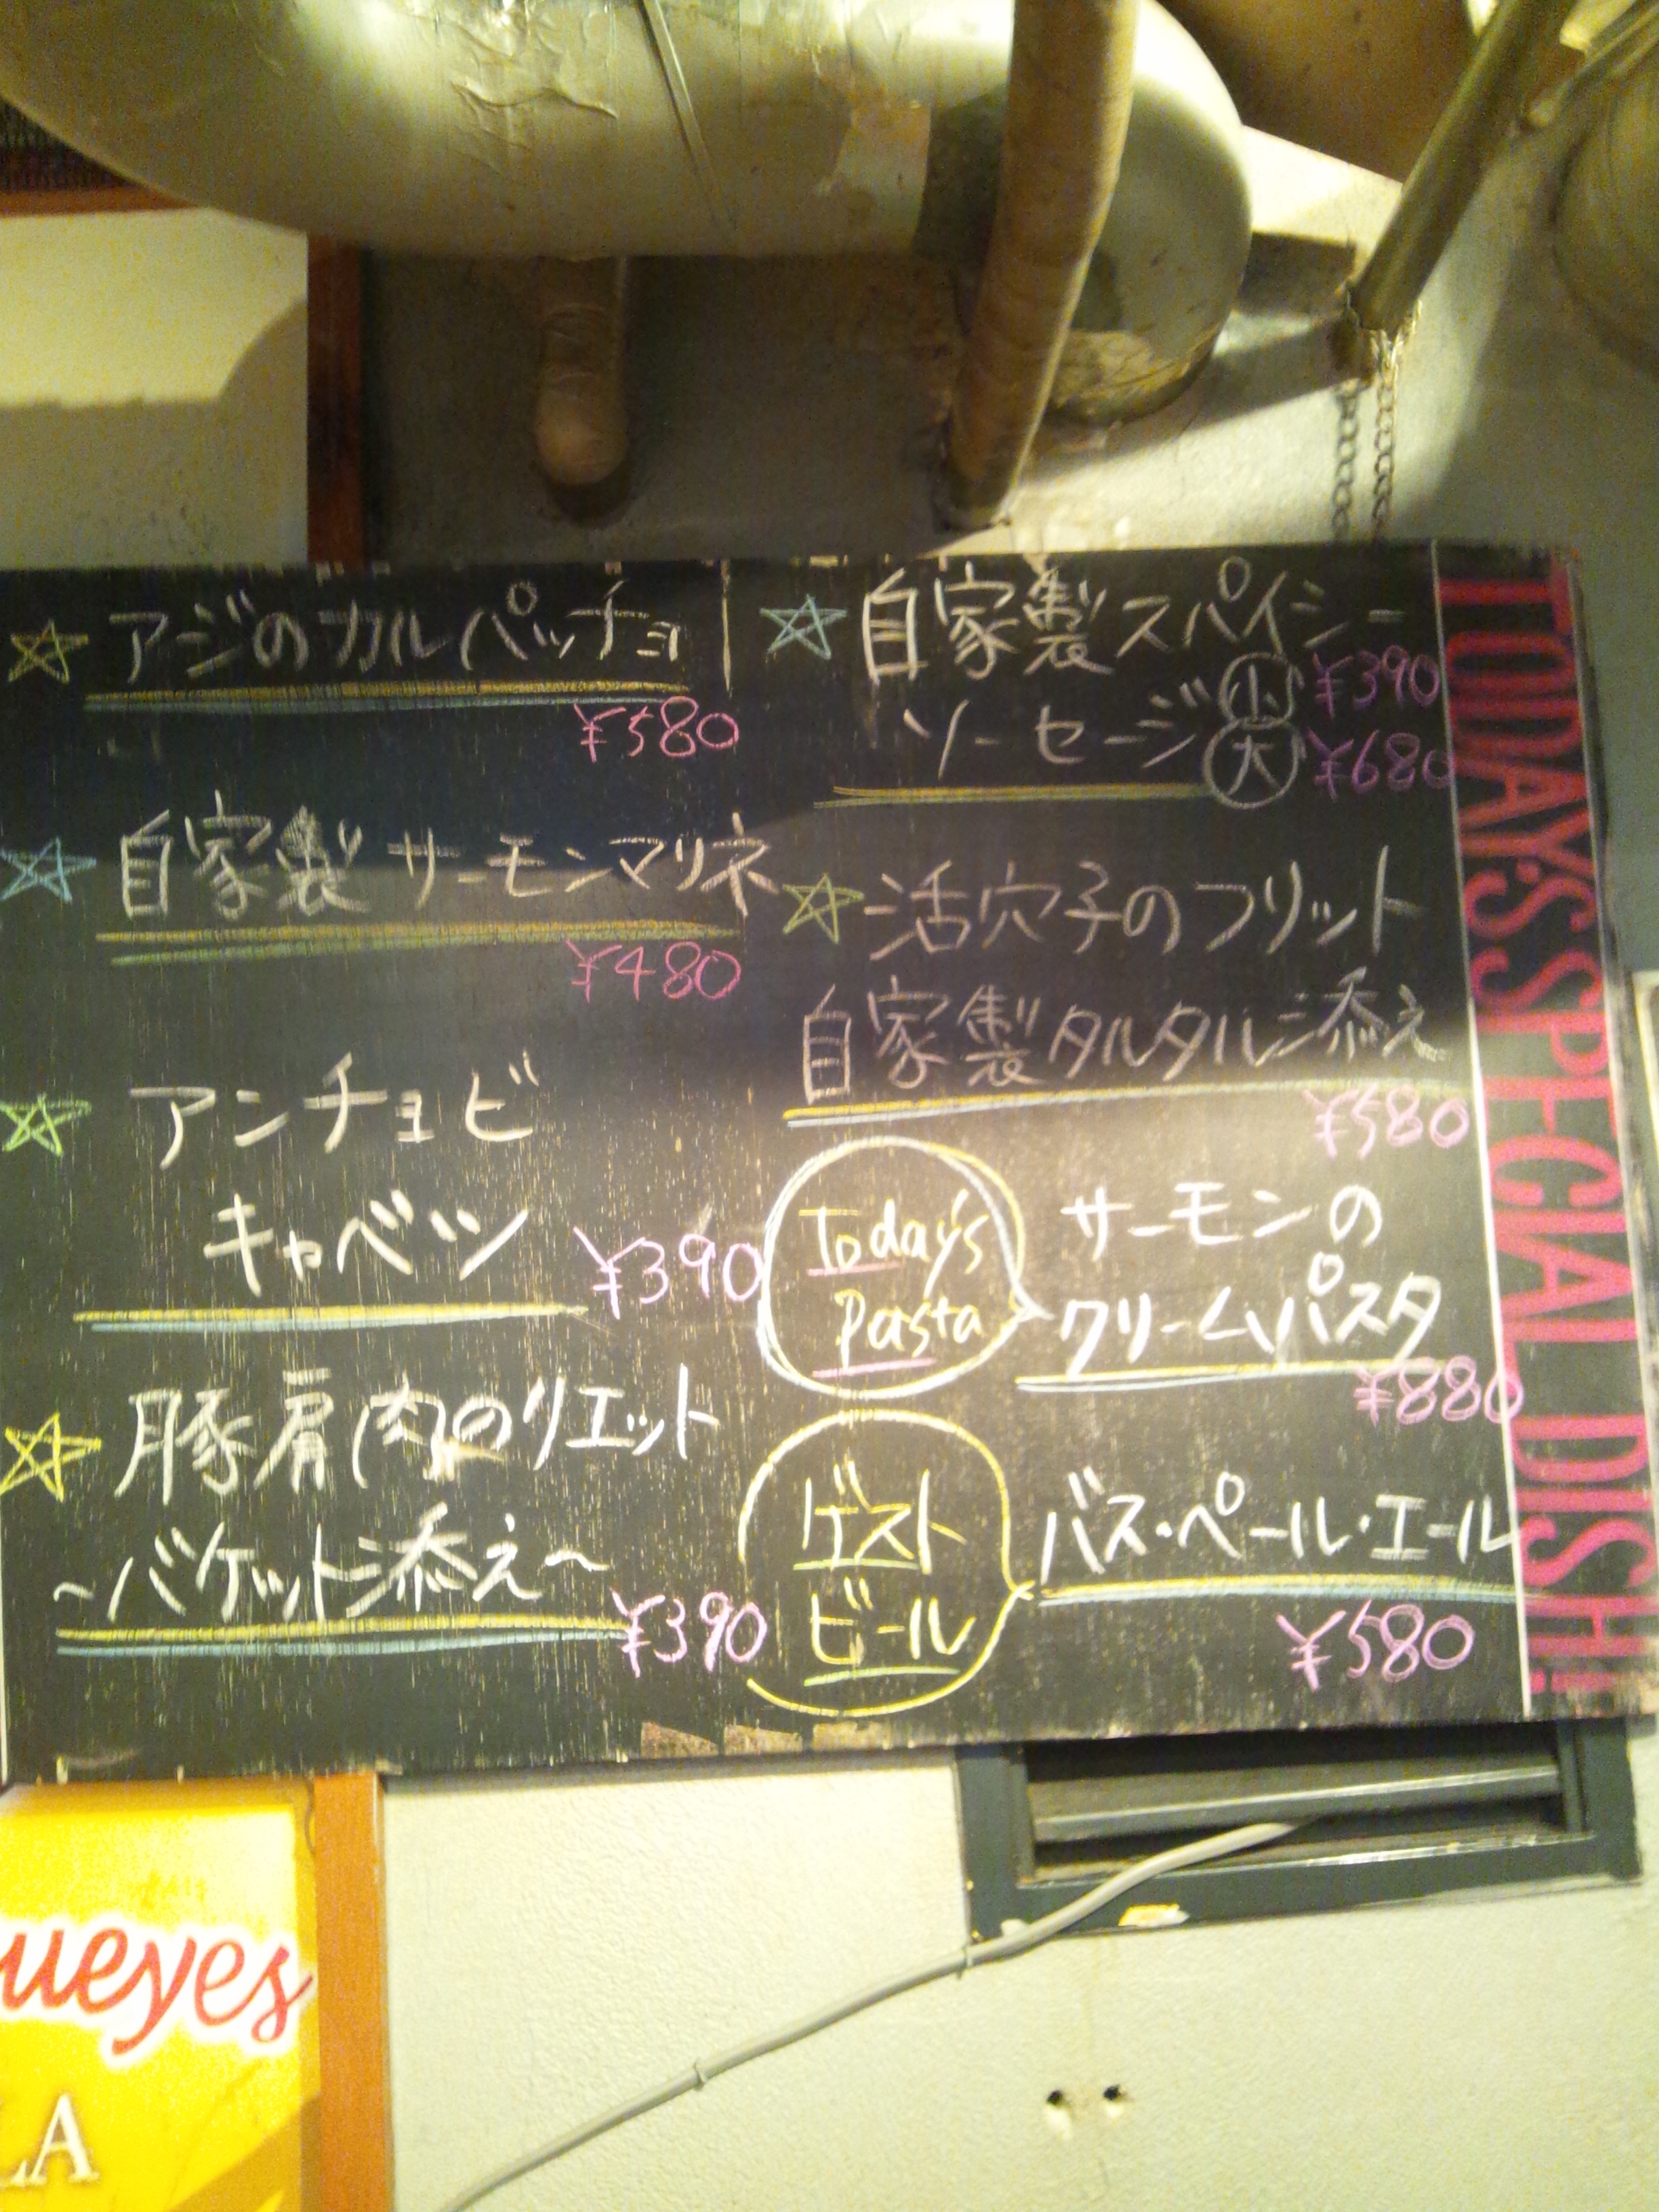 アジのカルパッチョ
¥580
自家製サーモンマリネ
¥480
アンチョビ
キャベツ ¥390
豚肩肉のリエット
~バケット添え~
¥390
自家製スパイシー
ソーセージ 小 ¥390
大 ¥680
活穴子のフリット
自家製タルタル添え
¥580
Today's
Pasta
サーモンの
クリームパスタ
¥880
ゲスト
ビール
バス・ペール・エール
¥580
TODAY'S SPECIAL DISH!
ueyes
LA